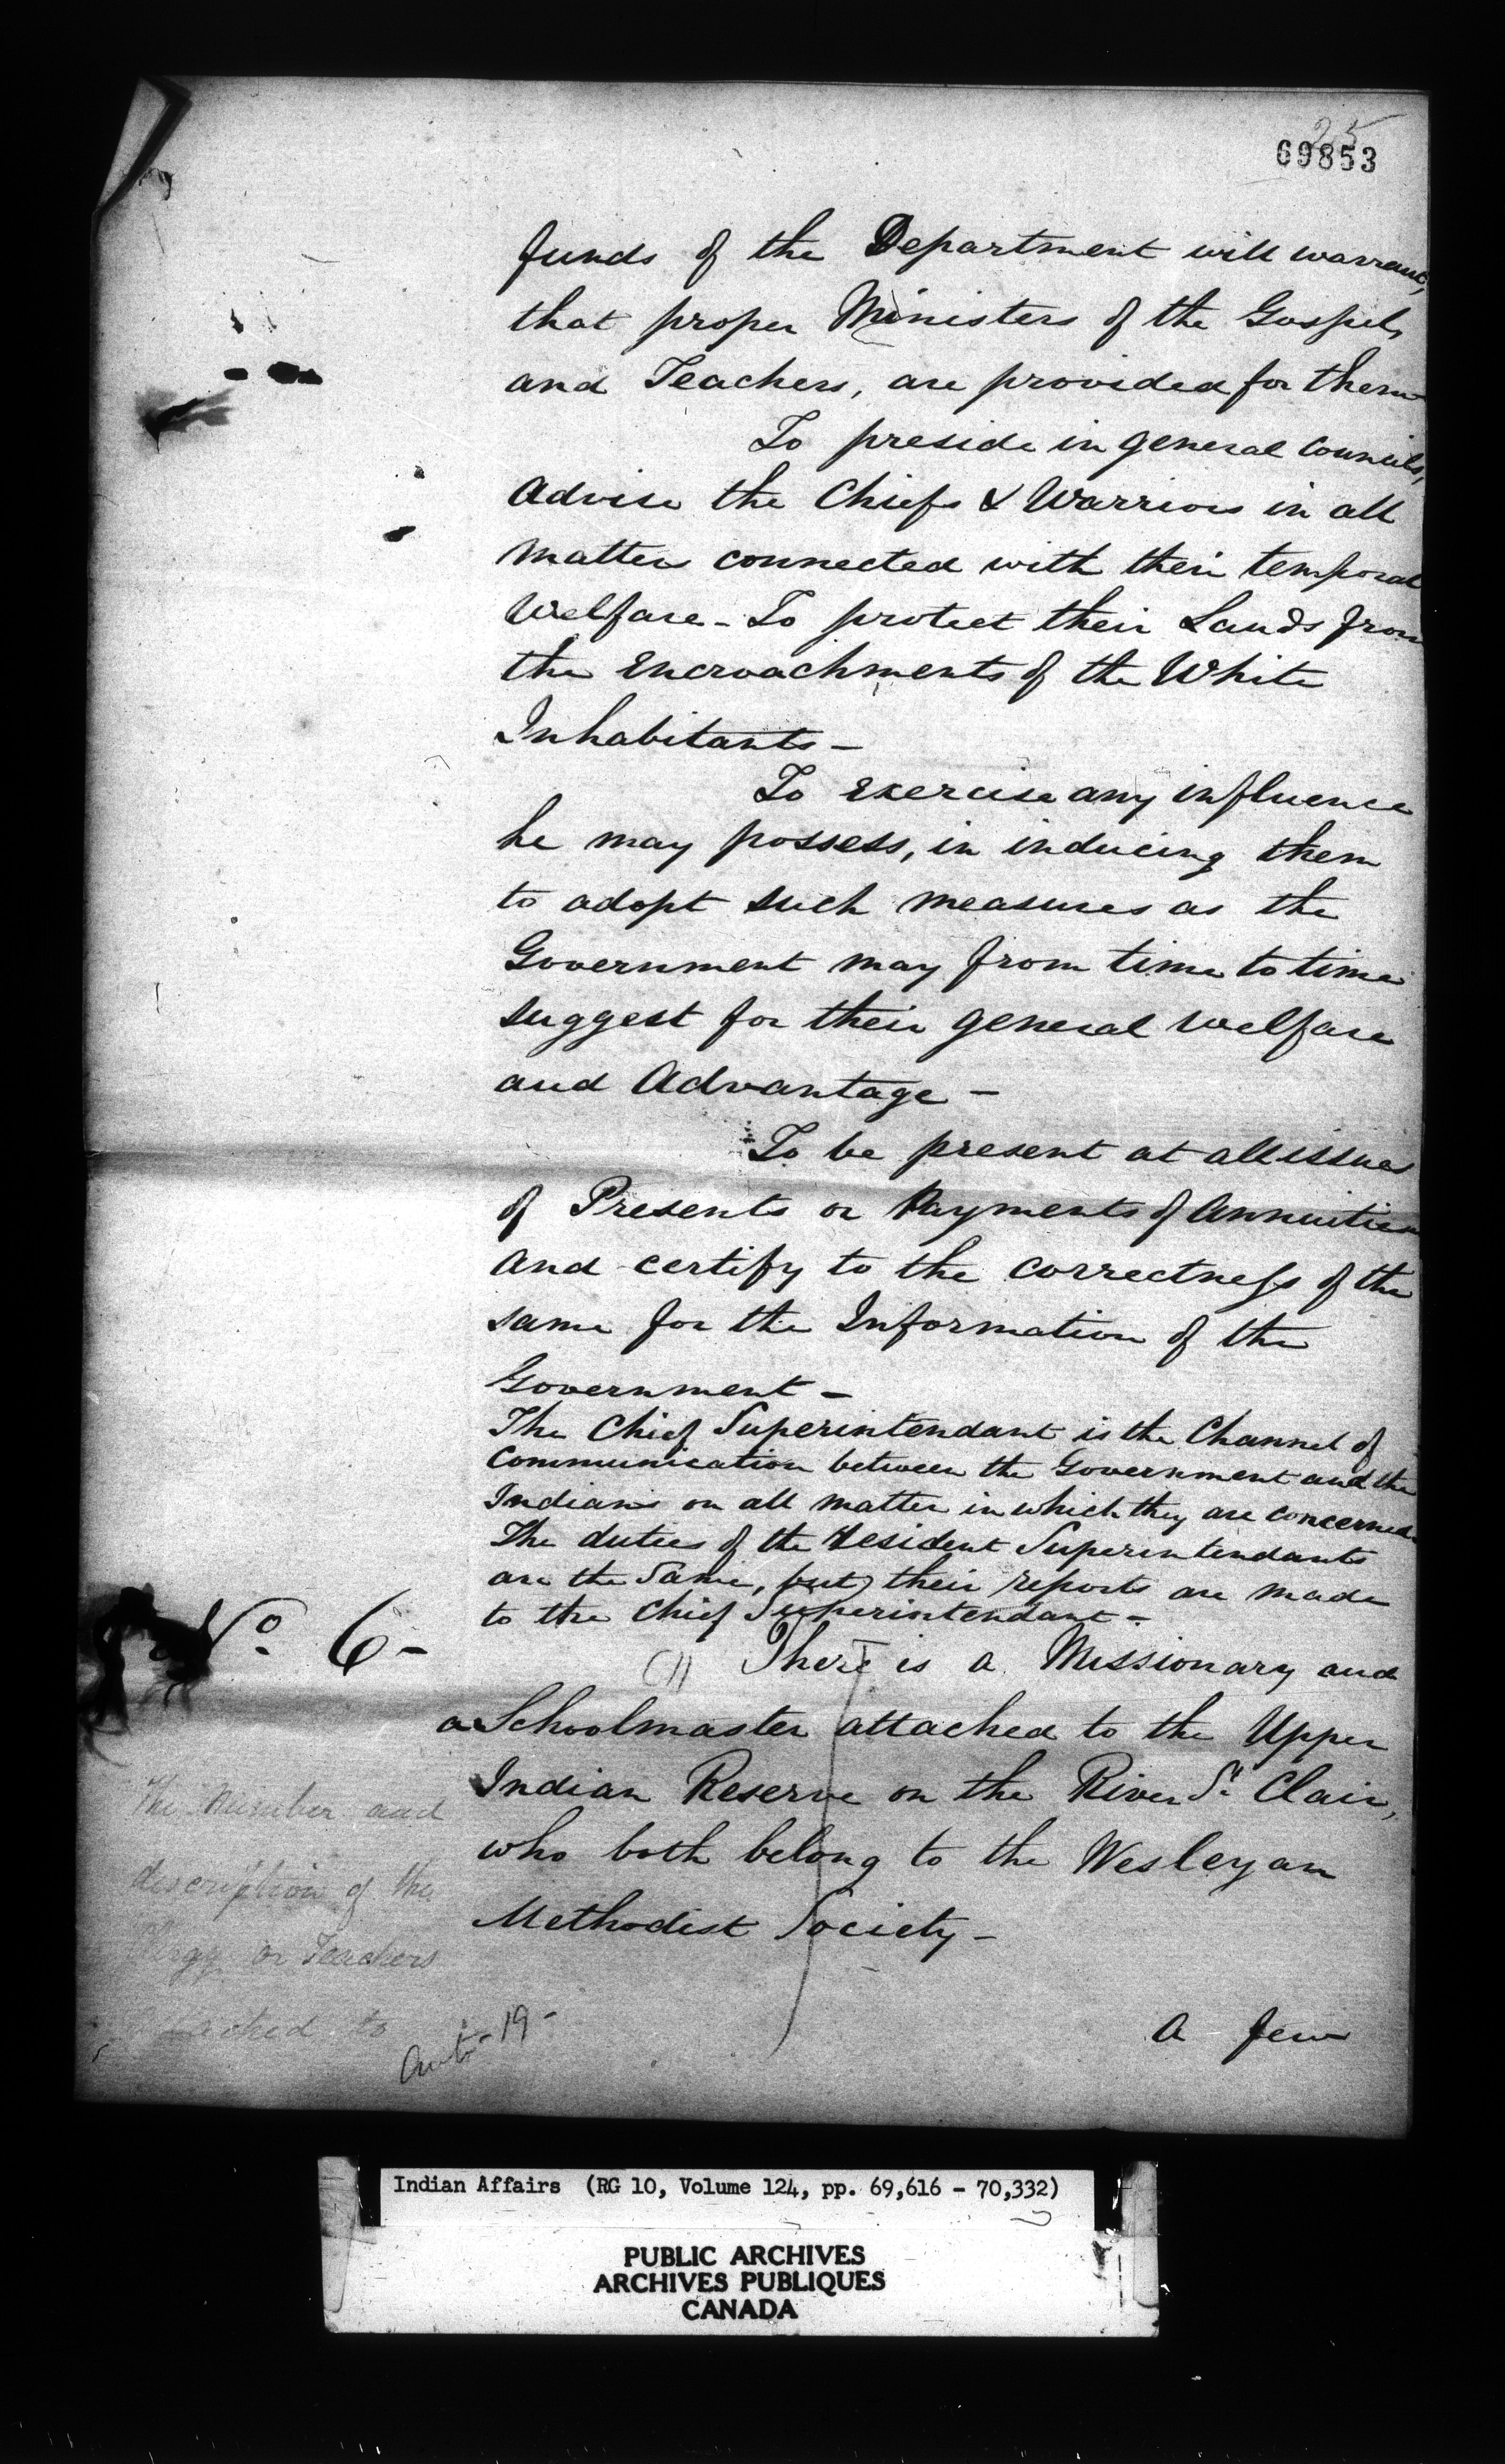 25
69853
funds of the Department will warrant,
that proper Ministers of the Gospel,
and Teachers, are provided for them
To preside in general Councils,
Advise the Chiefs & Warriors in all
Matters connected with their temporal
Welfare - To protect their Lands from
the Encroachments of the White
Inhabitants -
To exercise any influence
he may possess, in inducing them
to adopt such measures as the
Government may from time to time
suggest for their general welfare
and Advantage -
To be present at all issues
of Presents or Payments of Annuities
and certify to the correctness of the
same for the Information of the
Government -
The Chief Superintendant is the Channel of
Communication between the Government and the
Indians on all matter in which they are concerned
The duties of the Resident Superintendants
are the Same, but their reports are made
to the Chief Superintendant -
No 6 -
There is a Missionary and
a Schoolmaster attached to the Upper
Indian Reserve on the River St Clair,
who both belong to the Wesleyan
Methodist Society -
The Number and
description of the
Clergy or Teachers
attached to
19 -
A few
Indian Affairs (RG 10, Volume 124, pp. 69,616 - 70,332)
PUBLIC ARCHIVES
ARCHIVES PUBLIQUES
CANADA